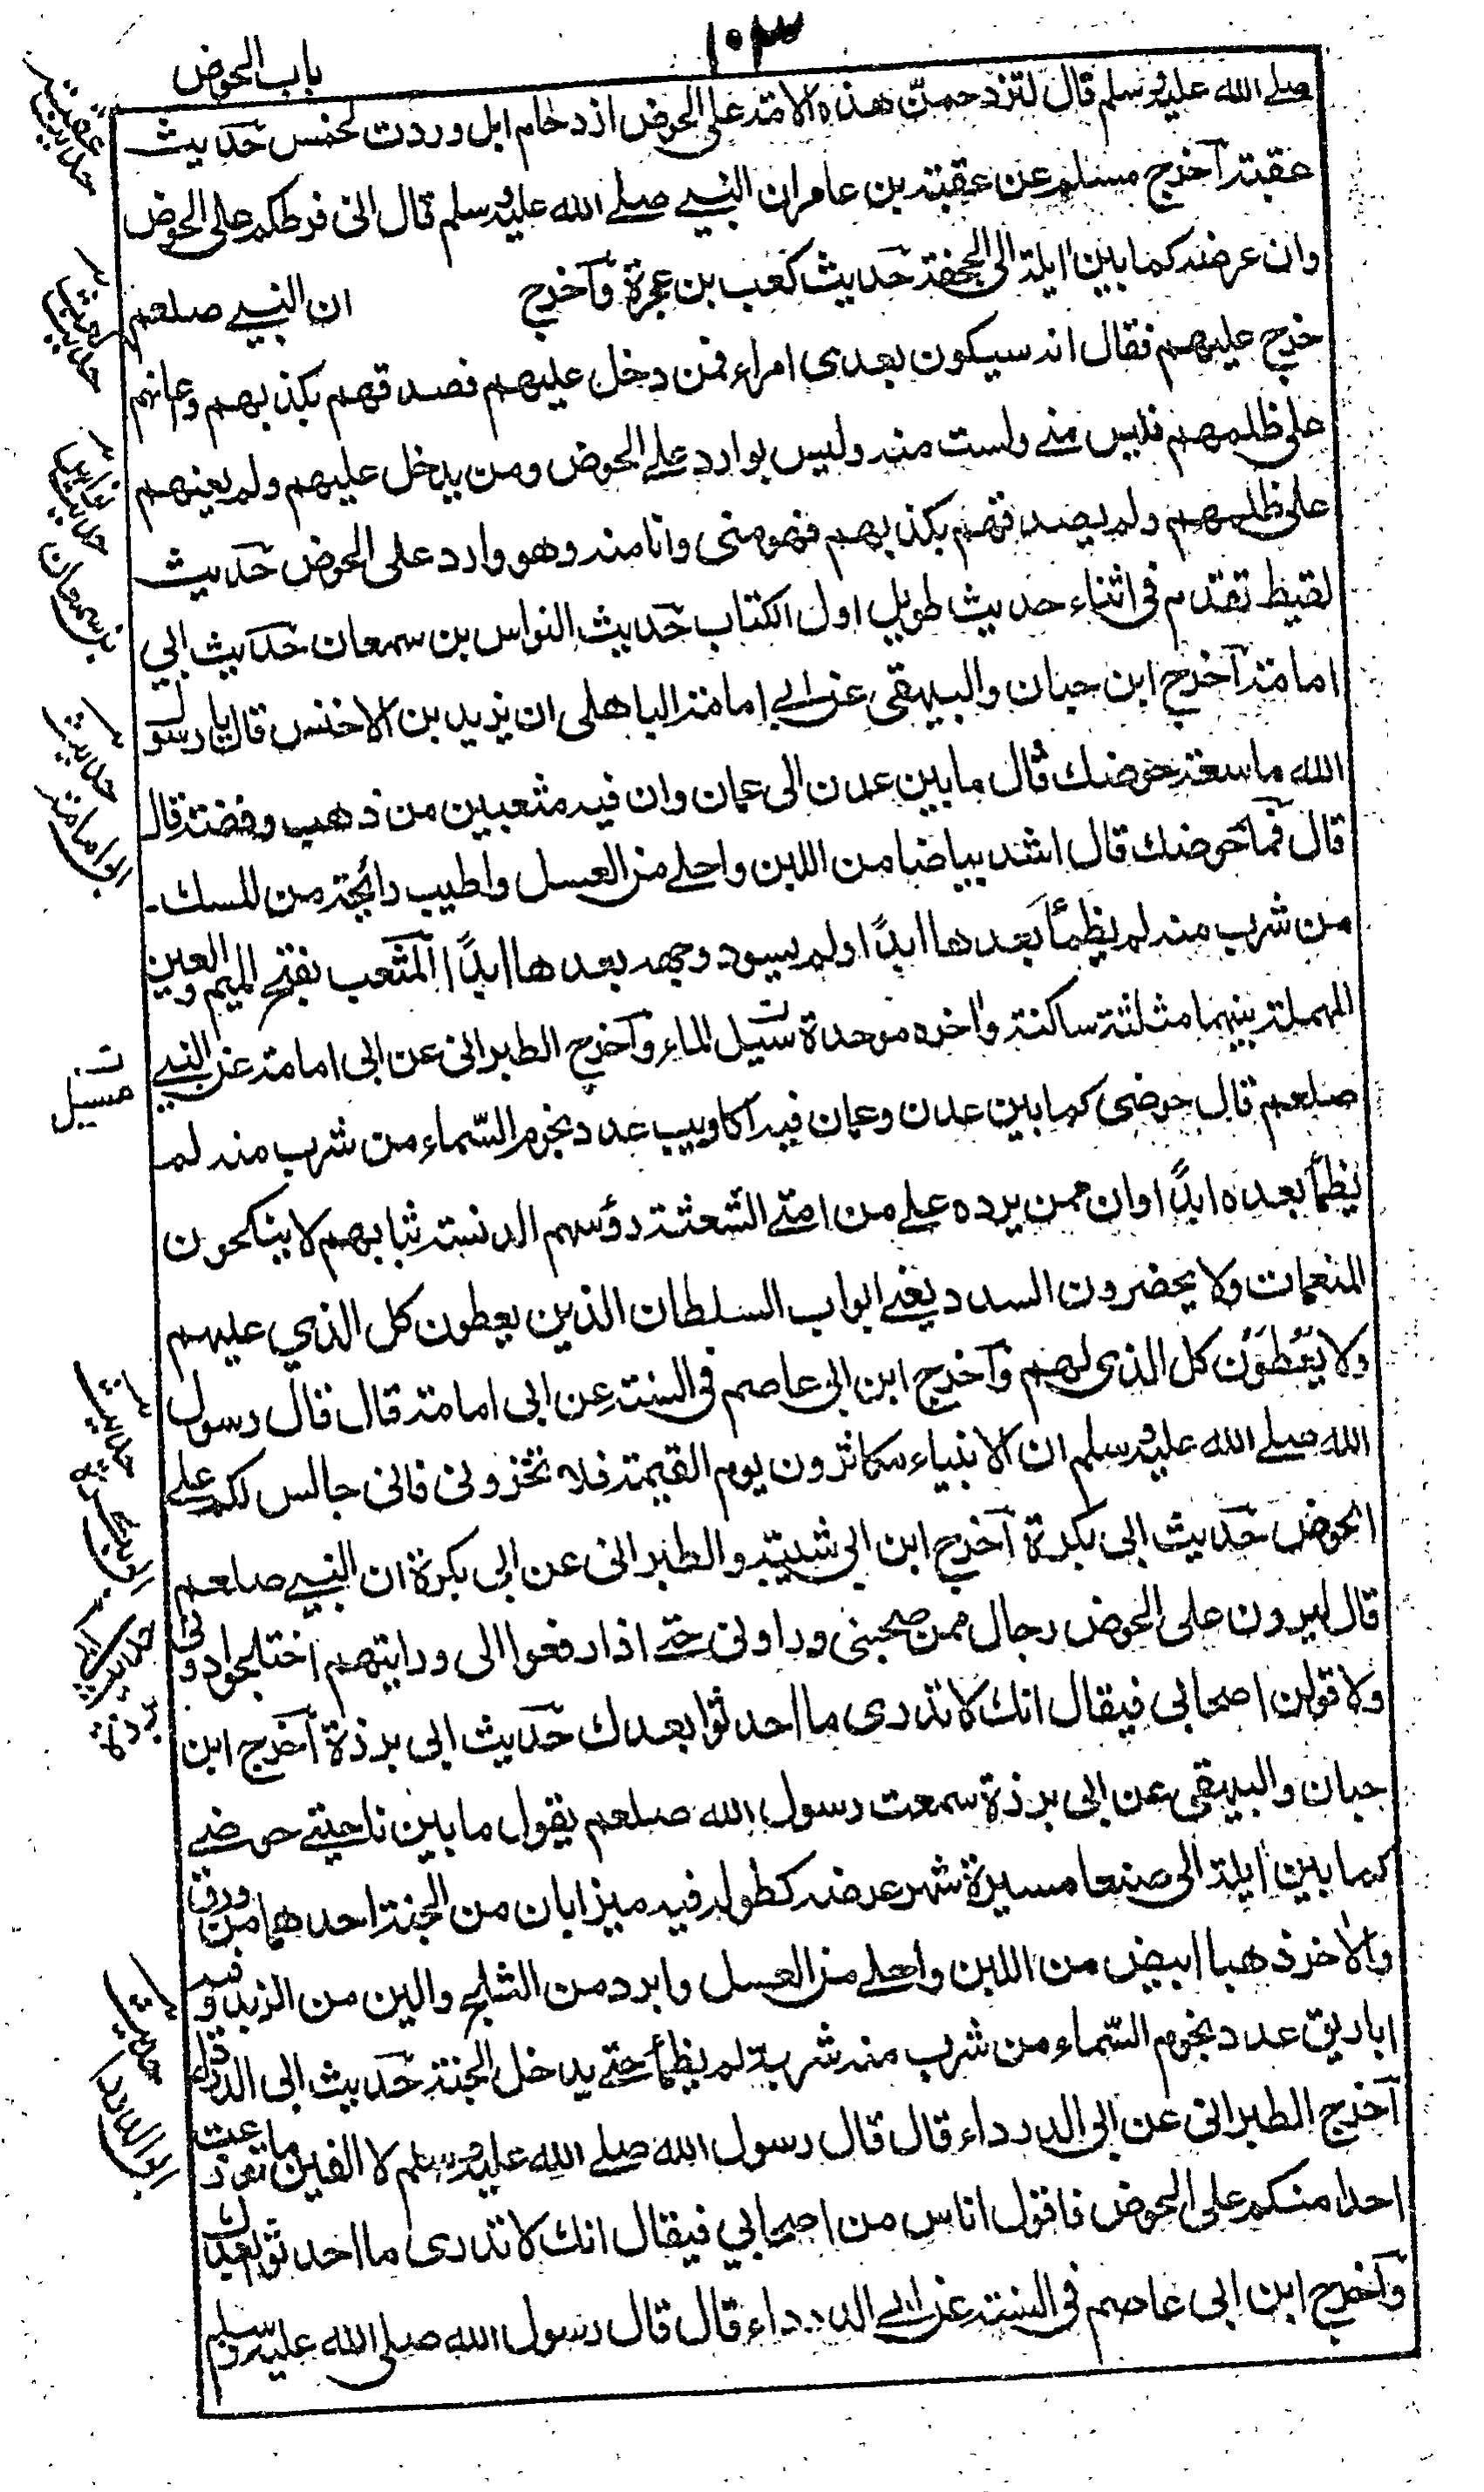 ١٠٣
باب الحوض
صلے الله عليه وسلم قال لتزدحمن هذه الامة على الحوض ازدحام ابل وردت لخمس حديث
عقبة آخرج مسلم عن عقبة بن عامر ان النبے صلے الله عليه وسلم قال انى فرطكم على الحوض
وان عرضه كما بين ايلة الى الجحفة حديث كعب بن عجرة وآخرج ان النبے صلعم
خرج عليهم فقال انه سيكون بعدى امراء فمن دخل عليهم فصدقهم بكذبهم واعانهم
على ظلمهم فليس منے ولست منه وليس بوارد علے الحوض ومن يدخل عليهم ولم يعنهم
على ظلمهم ولم يصدقهم بكذبهم فهو منى وانا منه وهو وارد على الحوض حديث
لقيط تقدم فى اثناء حديث طويل اول الكتاب حديث النواس بن سمعان حديث ابي
امامة آخرج ابن حبان والبيهقى عن ابے امامة الباهلى ان يزيد بن الاخنس قال يا رسول
الله ما سعة حوضك قال ما بين عدن الى عمان وان فيه مثعبين من ذهب وفضة قال
قال فما حوضك قال اشد بياضا من اللبن واحلے من العسل واطيب رائحة من المسك۔
من شرب منه لم يظمأ بعدها ابدًا ولم يسود وجهه بعدها ابدًا المثعب بفتح الميم والعين
المهملة بينهما مثلثة ساكنة واخره موحدة سيل الماء وآخرج الطبرانى عن ابى امامة عن النبے
صلعم قال حوضى كما بين عدن وعمان فيه اكاويب عدد نجوم السماء من شرب منه لم
يظمأ بعده ابدًا وان ممن يرده علے من امتے الشعثة رؤسهم الدنسة ثيابهم لا ينكحون
المنعمات ولا يحضرون السدد يغنے ابواب السلطان الذين يعطون كل الذي عليهم
ولا يعطون كل الذى لهم وآخرج ابن ابى عاصم فى السنة عن ابى امامة قال قال رسول
الله صلے الله عليه وسلم ان الانبياء مكاثرون يوم القيمة فلا تخزونى فانى جالس لكم علے
الحوض حديث ابى بكرة آخرج ابن ابى شيبة والطبرانى عن ابى بكرة ان النبے صلعم
قال ليردن على الحوض رجال ممن صحبنى ورآونى حتے اذا رفعوا الى ورايتهم اختلجوا دونى
ولاقولن اصحابى فيقال انك لا تدرى ما احدثوا بعدك حديث ابى برزة آخرج ابن
حبان والبيهقى عن ابى برزة سمعت رسول الله صلعم يقول ما بين ناحيتے حوضے
كما بين ايلة الى صنعا مسيرة شهر عرضه كطوله فيه ميزابان من الجنة احدهما من ورق
والاخر ذهبا ابيض من اللبن واحلے من العسل وابرد من الثلج والين من الزبد وفيه
اباريق عدد نجوم السماء من شرب منه شربة لم يظمأ حتے يدخل الجنة حديث ابى الدرداء
آخرج الطبرانى عن ابى الدرداء قال قال رسول الله صلے الله عليه وسلم لا الفين ما نوزعت
احدا منكم على الحوض فاقول اناس من اصحابي فيقال انك لا تدرى ما احدثوا بعدك
وآخرج ابن ابى عاصم فى السنة عن ابے الدرداء قال قال رسول الله صلى الله عليه وسلم
حديث عقبة
حديث
حديث نواس
بن سمعان
حديث
ابو امامة
مسيل
حديث
ابو بكرة
حديث ابو
برزة
حديث
ابو الدرداء